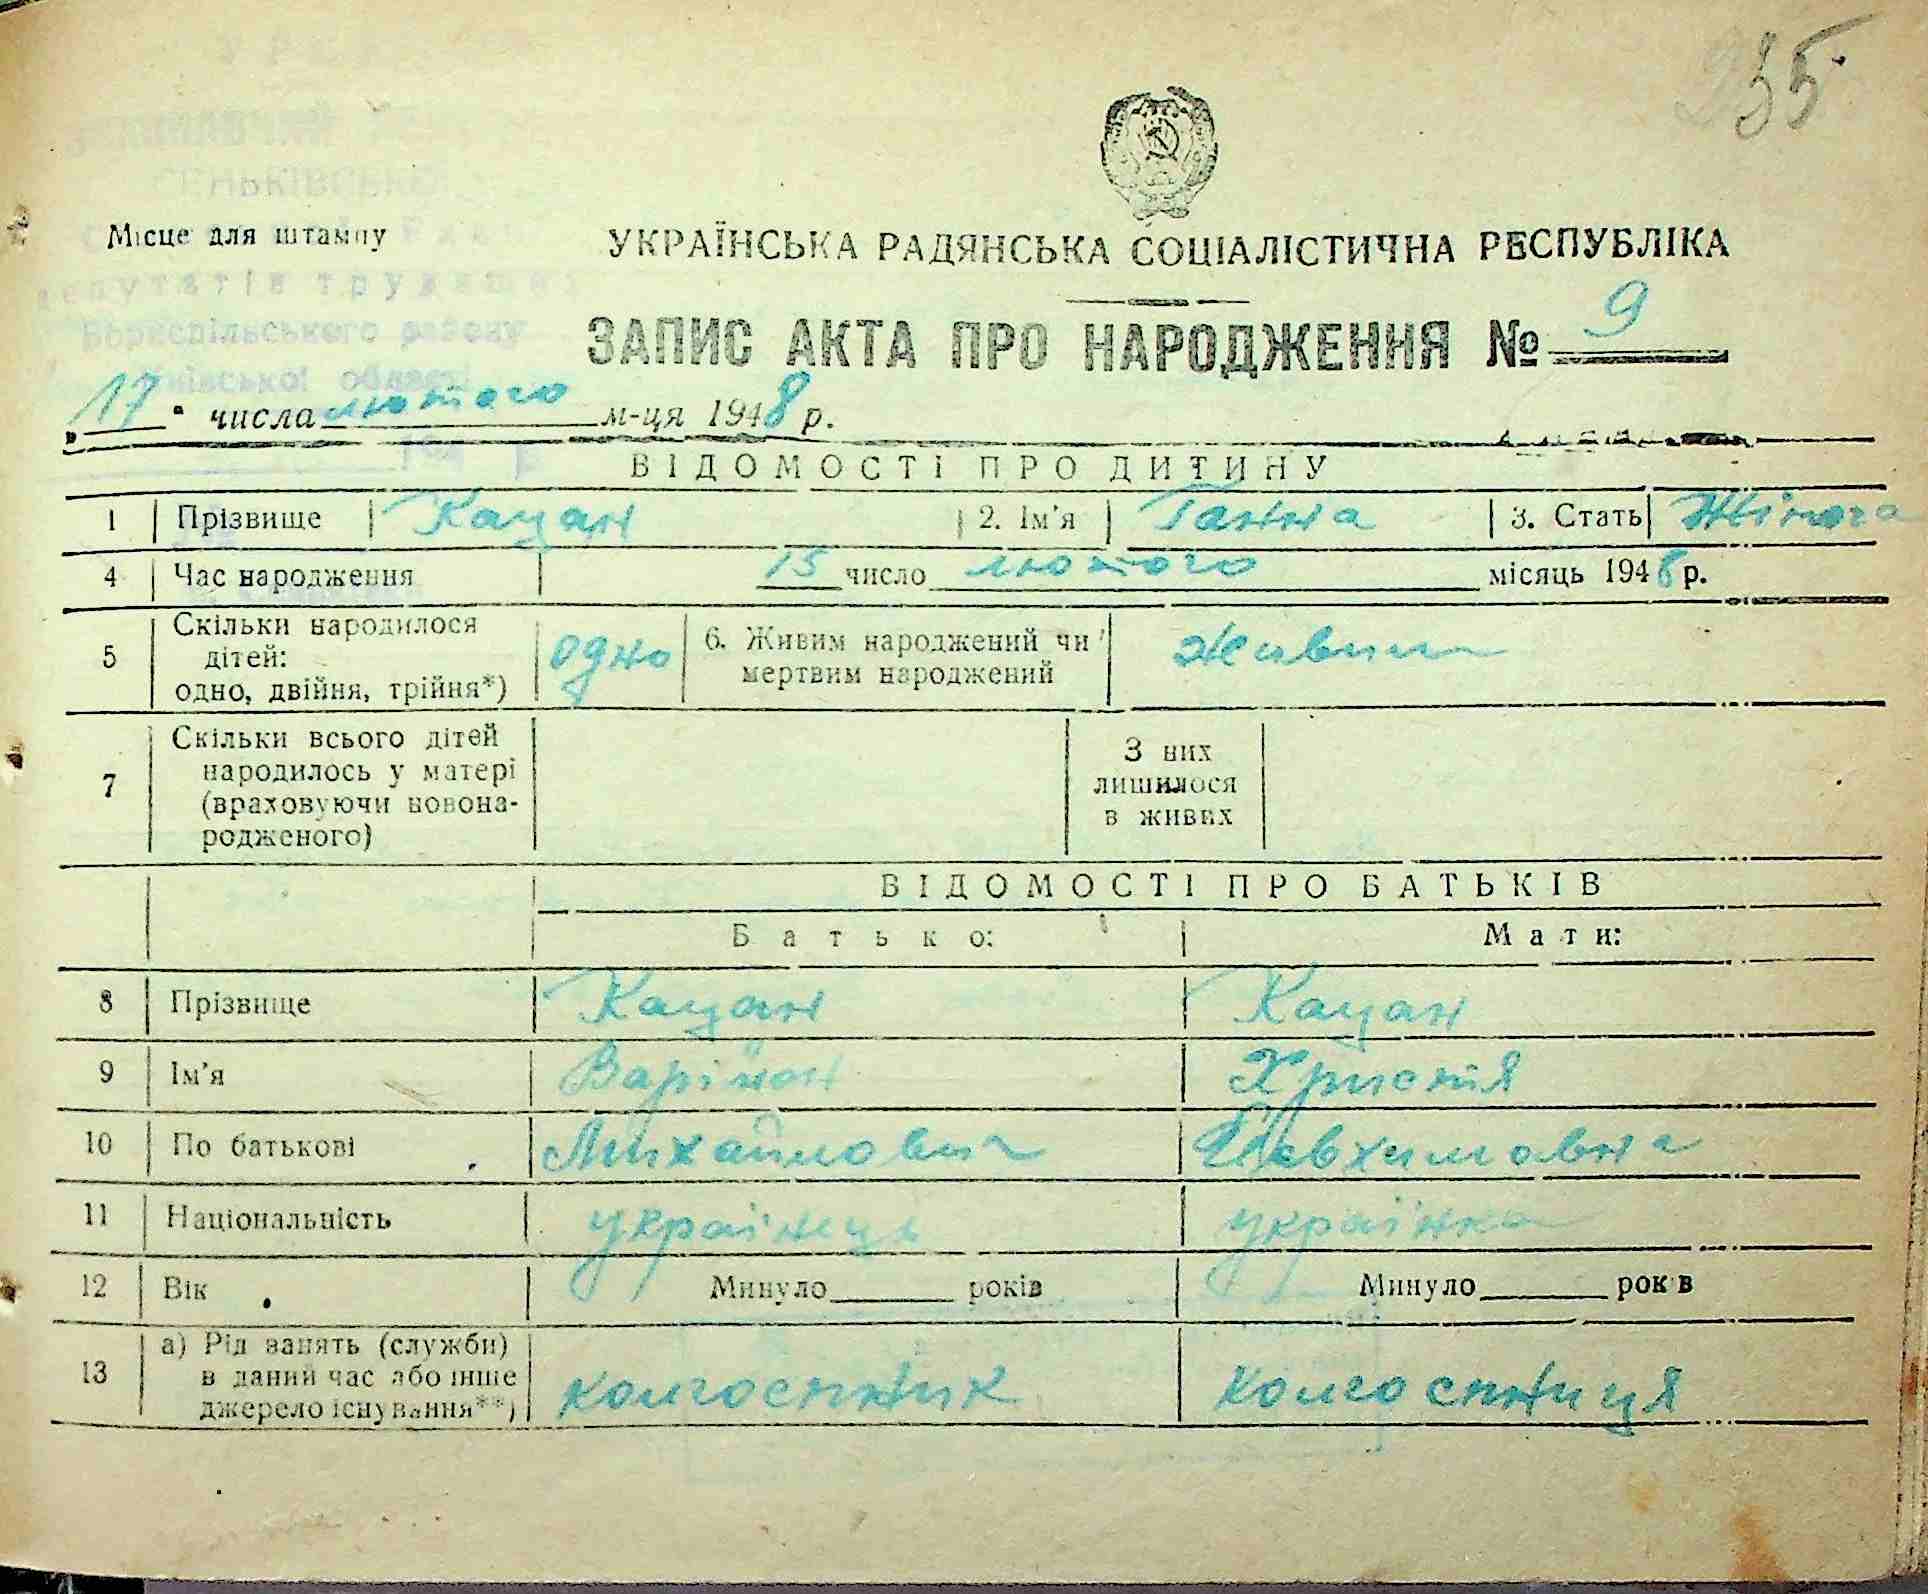 235
УКРАЇНСЬКА РАДЯНСЬКА СОЦІАЛІСТИЧНА РЕСПУБЛІКА
Місце для штампу
СЕНЬКІВСЬКО
депутатів трудящих
Бориспільського району
Київської області
ЗАПИС АКТА ПРО НАРОДЖЕННЯ № 9
„17" числа лютого м-ця 1948 р.
ВІДОМОСТІ ПРО ДИТИНУ
1 Прізвище Кацан 2. Ім'я Ганна 3. Стать Жіноча
4 Час народження 15 число лютого місяць 1948 р.
5 Скільки народилося дітей: одно, двійня, трійня*) одно 6. Живим народжений чи мертвим народжений Живим
7 Скільки всього дітей народилось у матері (враховуючи новонародженого) З них лишилося в живих
ВІДОМОСТІ ПРО БАТЬКІВ
Батько: Мати:
8 Прізвище Кацан Кацан
9 Ім'я Варівон Христя
10 По батькові Михайлович Явхимовна
11 Національність українець українка
12 Вік Минуло років Минуло рок в
13 а) Рід занять (служби) в даний час або інше джерело існування**) колгоспник колгоспниця